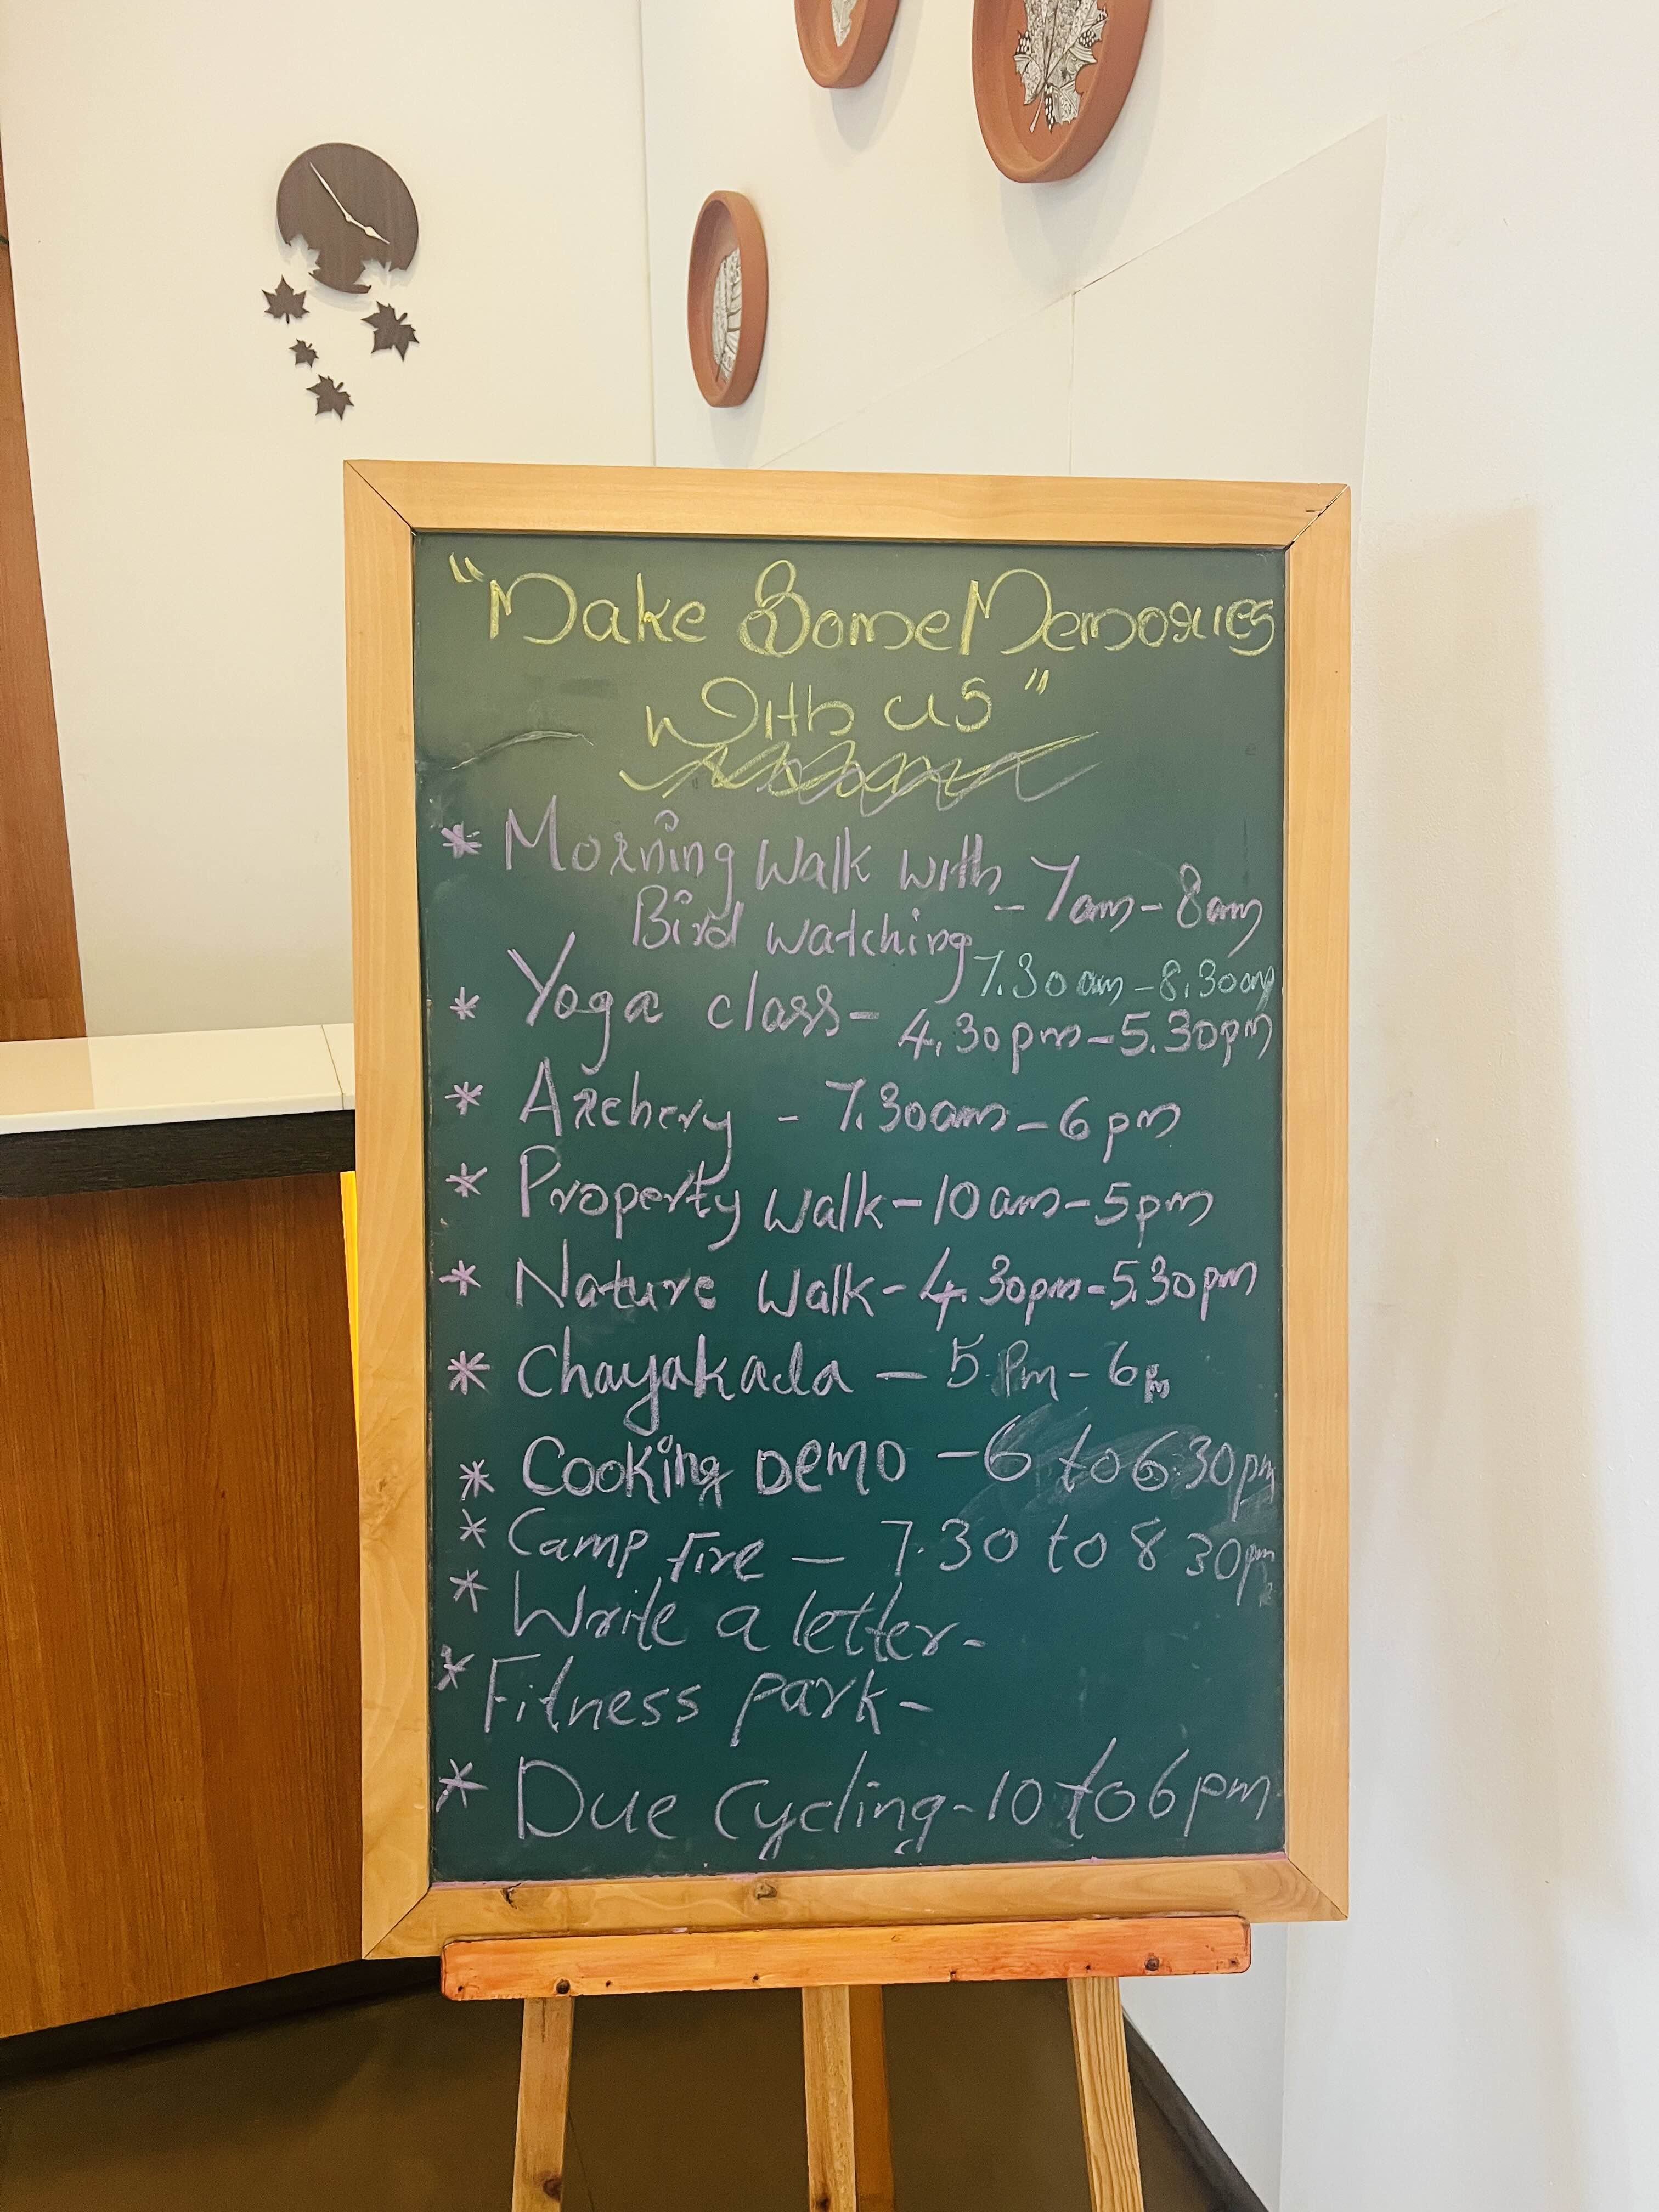 "Make Some Memories
With us"
* Morning Walk with
Bird watching - 7am - 8am
7.30am - 8.30am
* Yoga class - 4.30pm - 5.30pm
* Archery - 7.30am - 6pm
* Property Walk - 10am - 5pm
* Nature Walk - 4.30pm - 5.30pm
* Chayakada - 5 Pm - 6 Pm
* Cooking DEMO - 6 to 6.30pm
* Camp fire - 7.30 to 8 30pm
* Write a letter -
* Fitness park -
* Due Cycling - 10 to 6pm